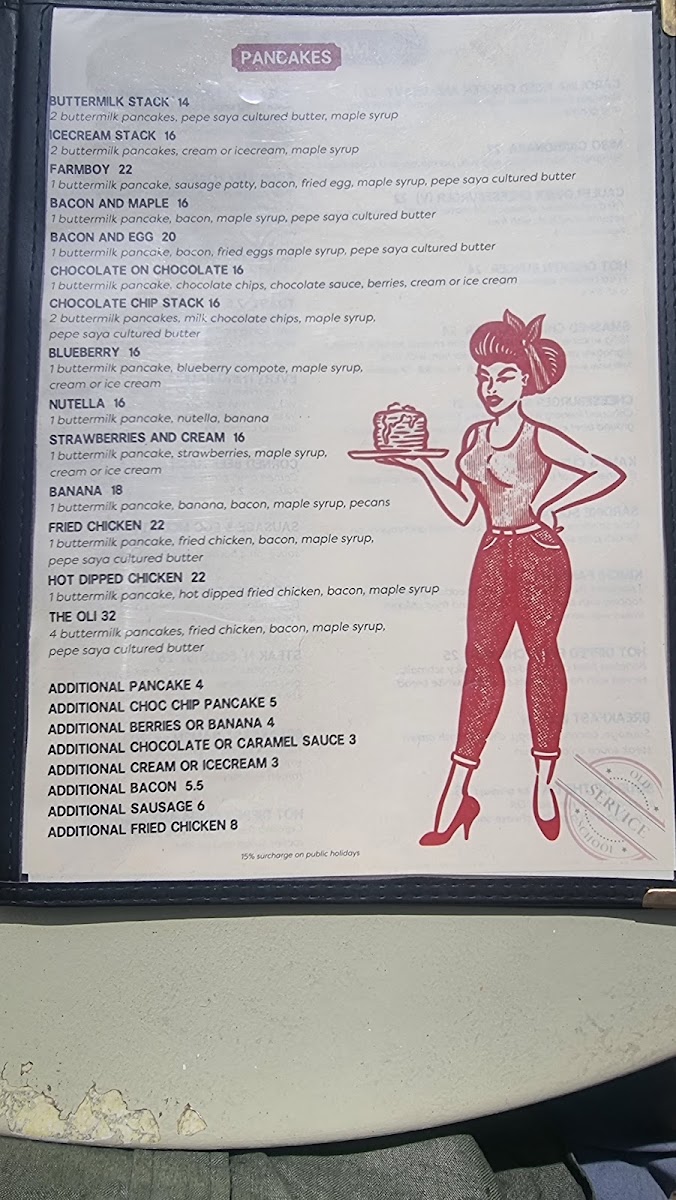 PANCAKES
BUTTERMILK STACK 14
2 buttermilk pancakes, pepe saya cultured butter, maple syrup
ICECREAM STACK 16
2 buttermilk pancakes, cream or icecream, maple syrup
FARMBOY 22
1 buttermilk pancake, sausage patty, bacon, fried egg, maple syrup, pepe saya cultured butter
BACON AND MAPLE 16
1 buttermilk pancake, bacon, maple syrup, pepe saya cultured butter
BACON AND EGG 20
1 buttermilk pancake, bacon, fried eggs maple syrup, pepe saya cultured butter
CHOCOLATE ON CHOCOLATE 16
1 buttermilk pancake, chocolate chips, chocolate sauce, berries, cream or ice cream
CHOCOLATE CHIP STACK 16
2 buttermilk pancakes, milk chocolate chips, maple syrup,
pepe saya cultured butter
BLUEBERRY 16
1 buttermilk pancake, blueberry compote, maple syrup,
cream or ice cream
NUTELLA 16
1 buttermilk pancake, nutella, banana
STRAWBERRIES AND CREAM 16
1 buttermilk pancake, strawberries, maple syrup,
cream or ice cream
BANANA 18
1 buttermilk pancake, banana, bacon, maple syrup, pecans
FRIED CHICKEN 22
1 buttermilk pancake, fried chicken, bacon, maple syrup,
pepe saya cultured butter
HOT DIPPED CHICKEN 22
1 buttermilk pancake, hot dipped fried chicken, bacon, maple syrup
THE OLI 32
4 buttermilk pancakes, fried chicken, bacon, maple syrup,
pepe saya cultured butter
ADDITIONAL PANCAKE 4
ADDITIONAL CHOC CHIP PANCAKE 5
ADDITIONAL BERRIES OR BANANA 4
ADDITIONAL CHOCOLATE OR CARAMEL SAUCE 3
ADDITIONAL CREAM OR ICECREAM 3
ADDITIONAL BACON 5.5
ADDITIONAL SAUSAGE 6
ADDITIONAL FRIED CHICKEN 8
15% surcharge on public holidays
SERVICE